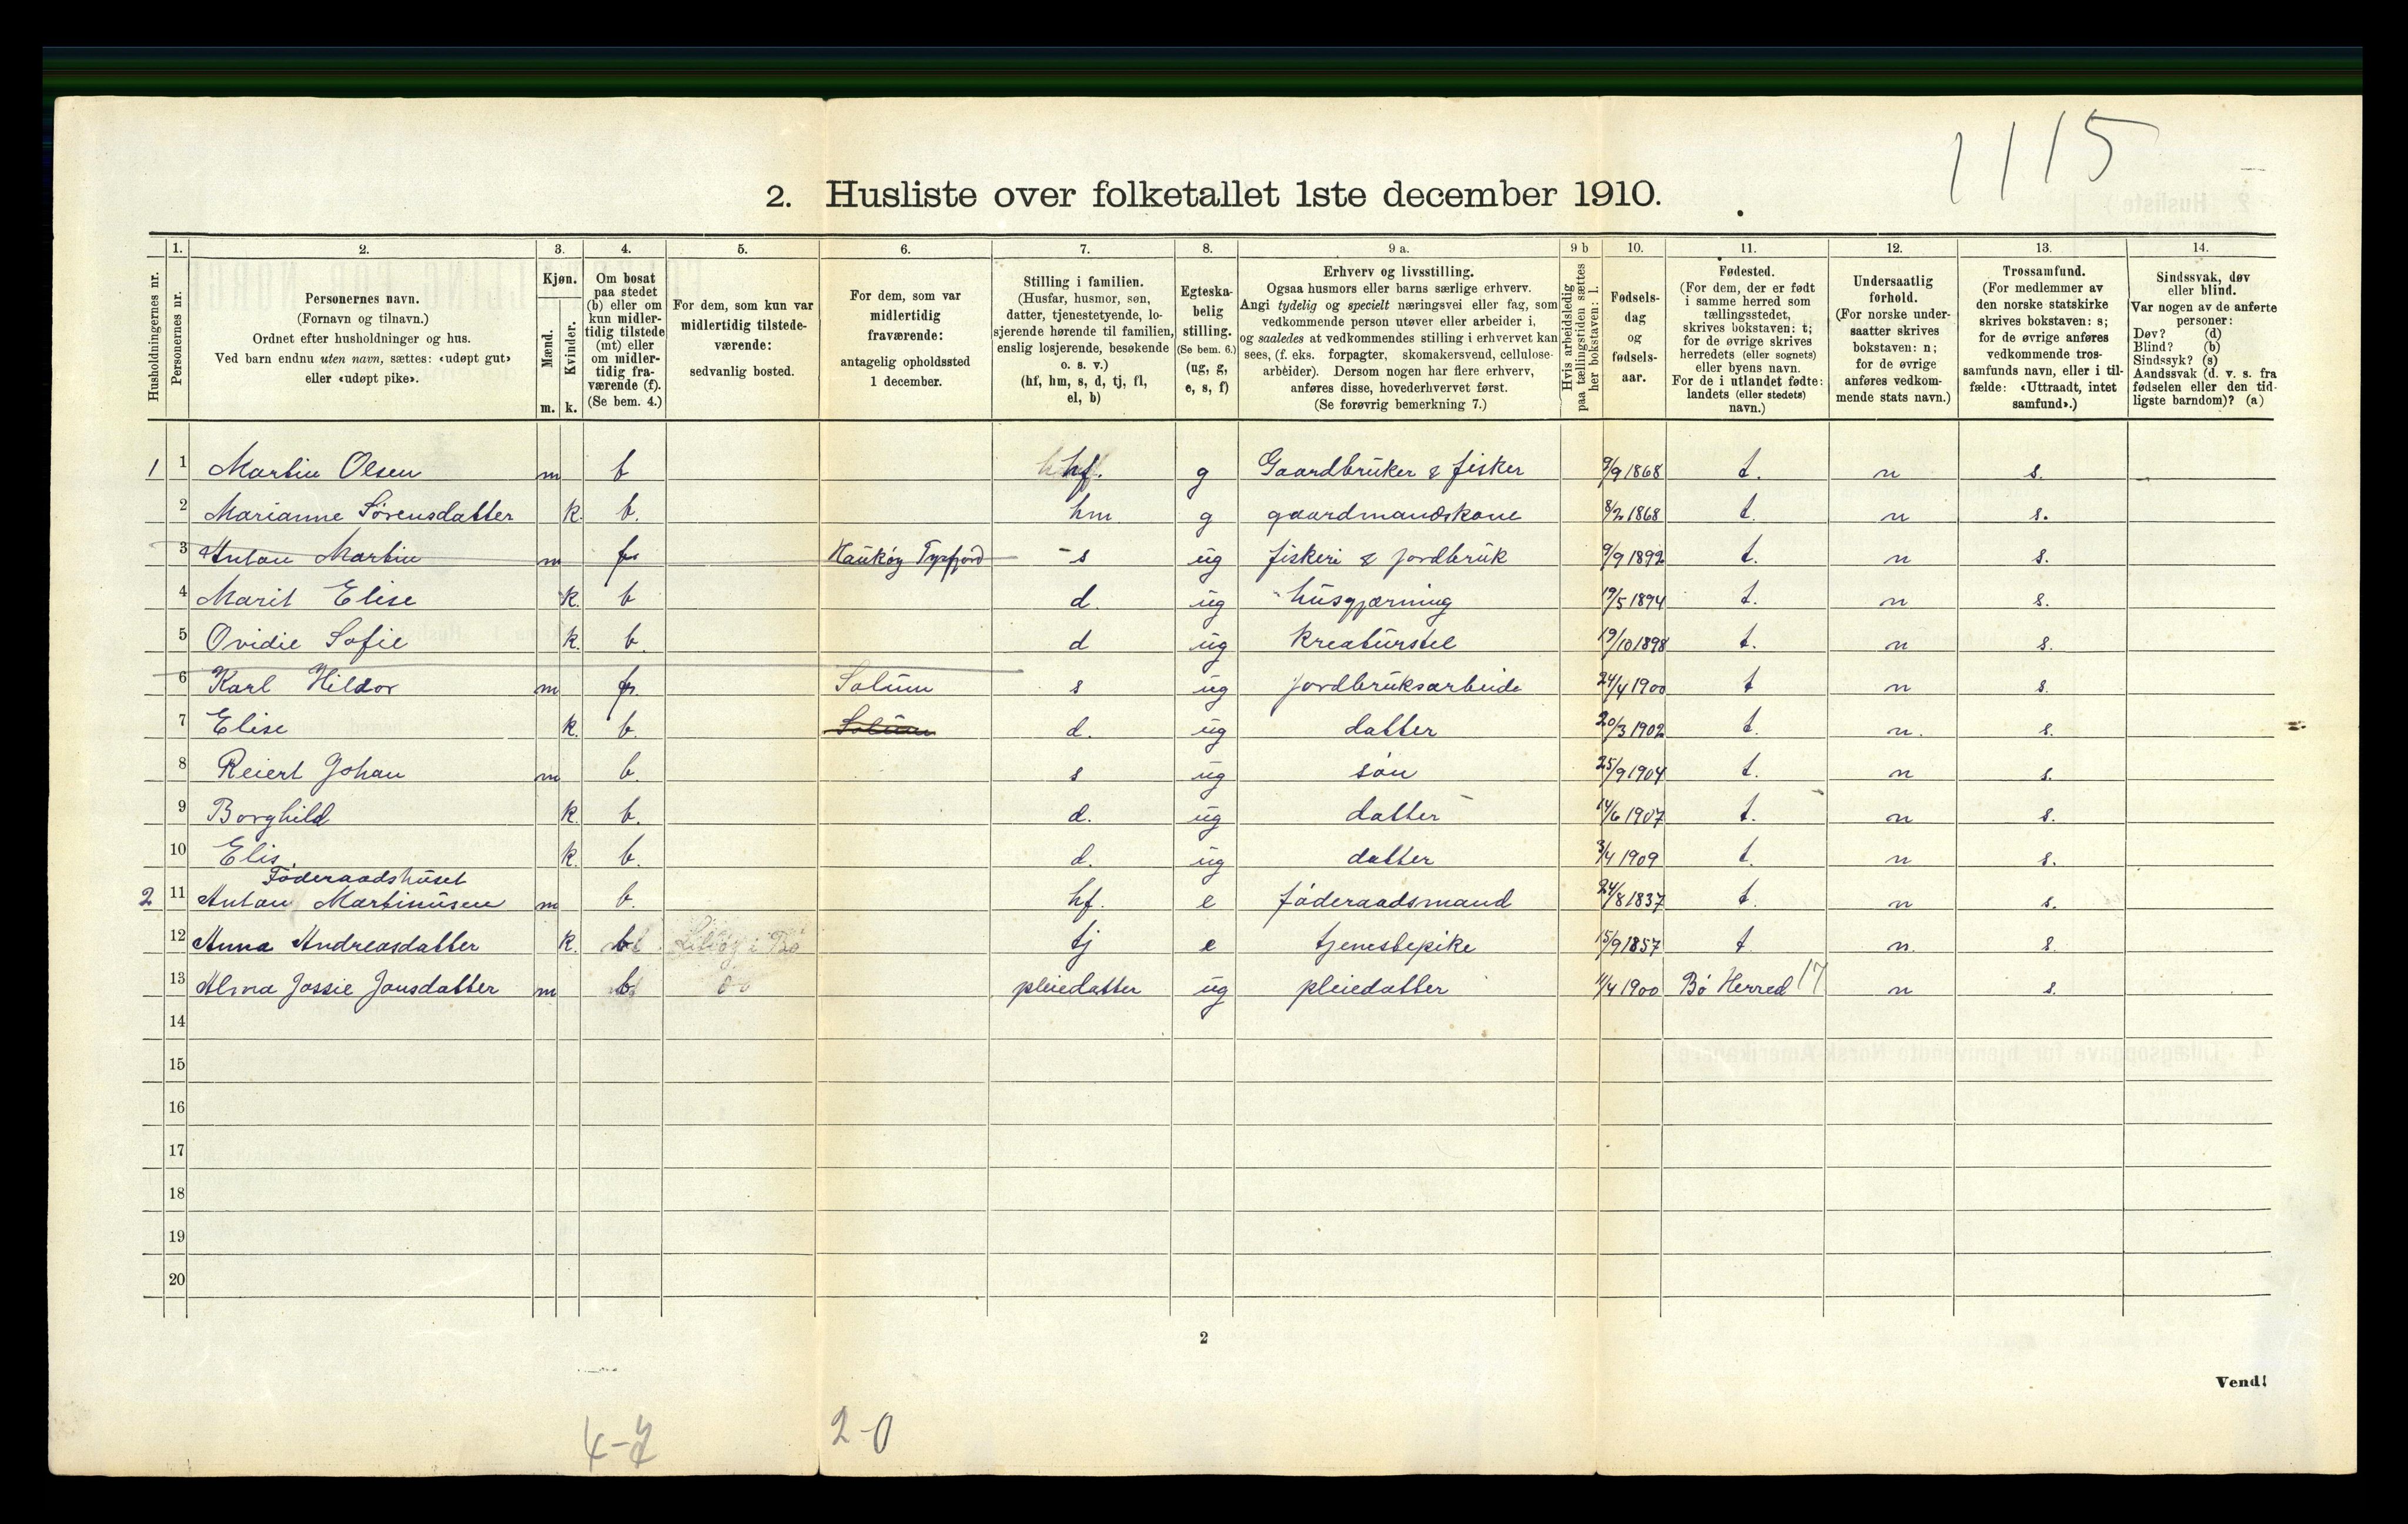 1115
2. Husliste over folketallet 1ste december 1910.
Husholdningernes nr.
1. Personernes nr.
2. Personernes navn.
(Fornavn og tilnavn.)
Ordnet efter husholdninger og hus.
Ved barn endnu uten navn, sættes: «udøpt gut»
eller «udøpt pike».
3. Kjøn.
Mænd. m.
Kvinder. k.
4. Om bosat
paa stedet
(b) eller om
kun midler-
tidig tilstede
(mt) eller
om midler-
tidig fra-
værende (f).
(Se bem. 4.)
5. For dem, som kun var
midlertidig tilstede-
værende:
sedvanlig bosted.
6. For dem, som var
midlertidig
fraværende:
antagelig opholdssted
1 december.
7. Stilling i familien.
(Husfar, husmor, søn,
datter, tjenestetyende, lo-
sjerende hørende til familien,
enslig losjerende, besøkende
o. s. v.)
(hf, hm, s, d, tj, fl,
el, b)
8. Egteska-
belig
stilling.
(Se bem. 6.)
(ug, g,
e, s, f)
9 a. Erhverv og livsstilling.
Ogsaa husmors eller barns særlige erhverv.
Angi tydelig og specielt næringsvei eller fag, som
vedkommende person utøver eller arbeider i,
og saaledes at vedkommendes stilling i erhvervet kan
sees, (f. eks. forpagter, skomakersvend, cellulose-
arbeider). Dersom nogen har flere erhverv,
anføres disse, hovederhvervet først.
(Se forøvrig bemerkning 7.)
9 b Hvis arbeidsledig
paa tællingstiden sættes
her bokstaven: l.
10. Fødsels-
dag
og
fødsels-
aar.
11. Fødested.
(For dem, der er født
i samme herred som
tællingsstedet,
skrives bokstaven: t;
for de øvrige skrives
herredets (eller sognets)
eller byens navn.
For de i utlandet fødte:
landets (eller stedets)
navn.)
12. Undersaatlig
forhold.
(For norske under-
saatter skrives
bokstaven: n;
for de øvrige
anføres vedkom-
mende stats navn.)
13. Trossamfund.
(For medlemmer av
den norske statskirke
skrives bokstaven: s;
for de øvrige anføres
vedkommende tros-
samfunds navn, eller i til-
fælde: «Uttraadt, intet
samfund».)
14. Sindssvak, døv
eller blind.
Var nogen av de anførte
personer:
Døv? (d)
Blind? (b)
Sindssyk? (s)
Aandssvak (d. v. s. fra
fødselen eller den tid-
ligste barndom)? (a)
1 1 Martin Olsen m b hf. g Gaardbruker & fisker 9/9 1868 t. n s.
2 Marianne Sørensdatter k. b. hm g gaardmandskone 8/2 1868 t. n s.
3 Anton Martin m fr Haukøy Tysfjord s ug fiskeri & jordbruk 9/9 1892 t. n s.
4 Marit Elise k. b d. ug husgjærning 19/5 1894 t. n s.
5 Ovidie Sofie k. b. d ug kreaturstel 19/10 1898 t. n s.
6 Karl Hildor m fr. Solum s ug jordbruksarbeide 24/4 1900 t n s.
7 Elise k. b. Solum d. ug datter 20/3 1902 t. n. s.
8 Reiert Johan m b. s ug søn 25/9 1904 t. n s.
9 Borghild k. b. d. ug datter 14/6 1907 t. n s.
10 Elis. k. b. d. ug datter 3/4 1909 t. n s.
Føderaadshuset
2 11 Anton Martinusen m b. hf. e føderaadsmand 24/8 1837 t. n s.
12 Anna Andreasdatter k. b tj e tjenestepike 15/9 1857 t n. s.
13 Alma Jossie Jonsdatter m b do pleiedatter ug pleiedatter 11/4 1900 Bø Herred 17 n s.
14
15
16
17
18
19
20
2
Vend!
4-7
2-0